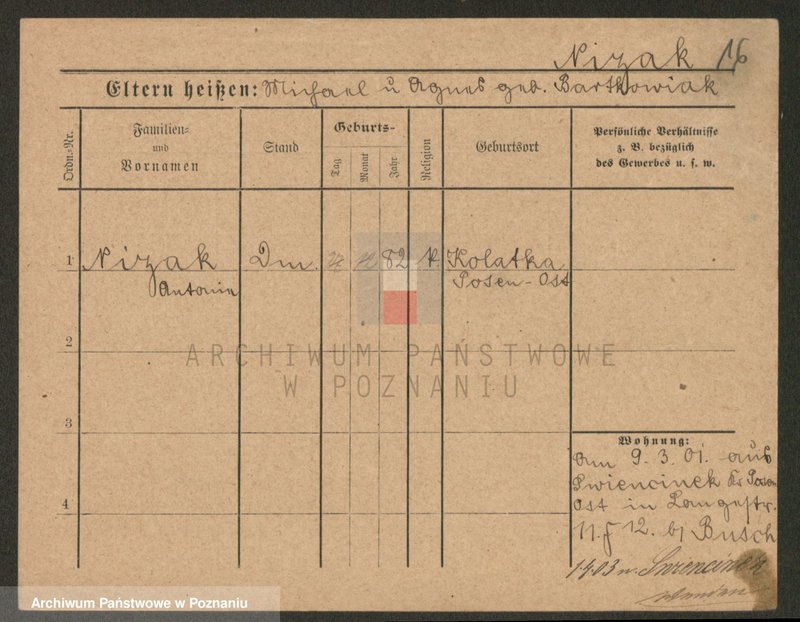 Nizak 16
Eltern heißen: Michael u Agnes geb. Bartkowiak
Ordn.-Nr.
Familien-
und
Vornamen
Stand
Geburts-
Tag
Monat
Jahr
Religion
Geburtsort
Persönliche Verhältnisse
z. B. bezüglich
des Gewerbes u. s. w.
1 Nizak Dm. 82 k. Kolatka
Antonin Posen-Ost
2
ARCHIWUM PAŃSTWOWE
W POZNANIU
3
Wohnung:
Am 9. 3. 01. aus
Swiencinek Kr Posen
Ost in Langestr.
4
11. f 12. bj Busch
1903 n. Swiencinek
Archiwum Państwowe w Poznaniu